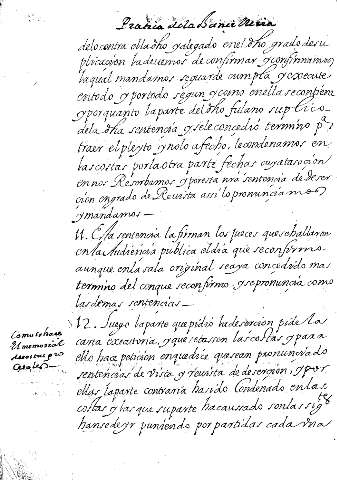 Pratica de la
delo contra ello dho y alegado en el dho grado de su
plicacion la devemos de confirmar y confirmamos
laqual mandamos seguarde cumpla y execute
entodo y portodo segun y como en ella se contiene
y porquanto la parte del dho fulano suplico
dela dha sentencia y sele concedio termino pa
traer el pleyto y nolo a fecho, le condenamos en
las costas por la otra parte fechas cuya tasacion
en nos Reservamos y por esta nra sentencia de deser
cion en grado de Revista assi lo pronunciamos
y mandamos
11. Esta sentencia la firman los jueces que se hallaren
en la Audiencia publica el dia que se confirmo
aunque en la sala original se aya concedido mas
termino del en que se confirmo y se pronuncia como
las demas sentencias
Como se hace
el memorial
de costas pro
cesales
12. Luego la parte que pidio la desercion pide la
carta executoria, y que se tasen las costas y para
ello hace peticion en que dice que se an pronunciado
sentencias de vista y revista de desercion, y por
ellas la parte contraria ha sido Condenado en las
costas y las que su parte ha causado son las sigtes
hanse de yr puniendo por partidas cada una